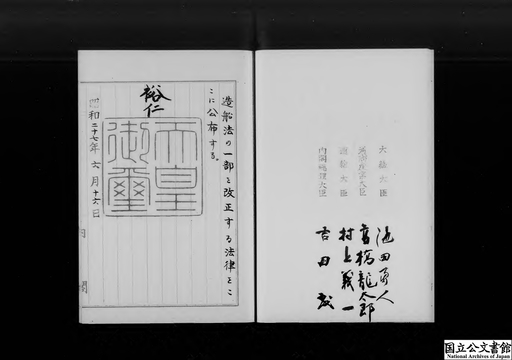 造船法の一部を改正する法律をこ
こに公布する。
裕仁
天皇
御璽
昭和二十七年六月十六日
内閣
大蔵大臣
通商産業大臣
運輸大臣
内閣総理大臣
池田勇人
高橋龍太郎
村上義一
吉田茂
国立公文書館
National Archives of Japan